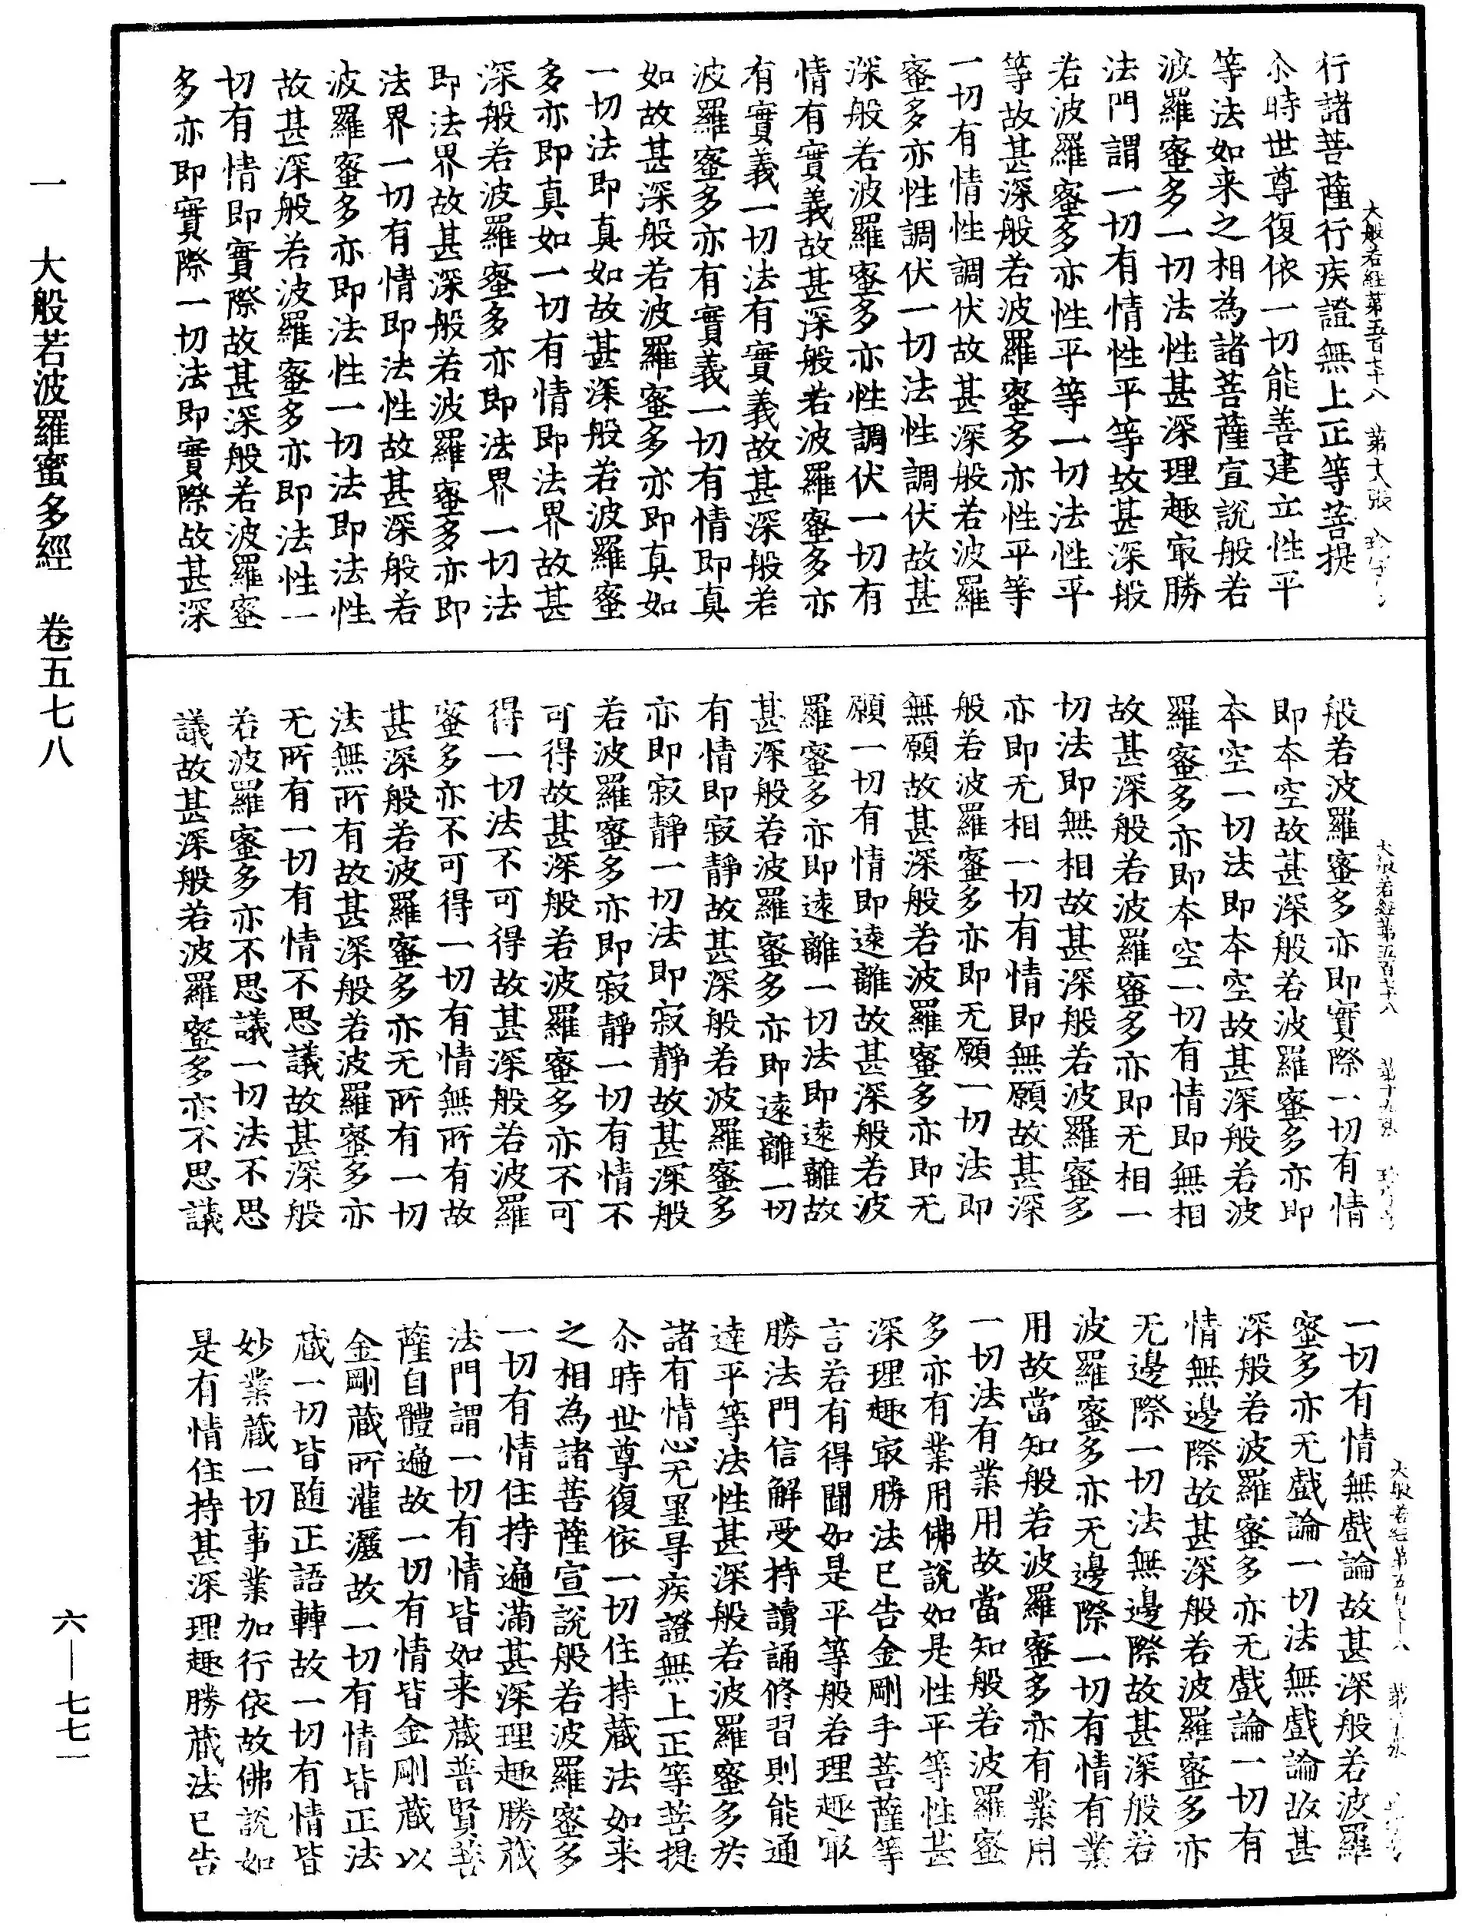 行諸菩薩行疾證無上正等菩提
尒時世尊復依一切能善建立性平
等法如来之相為諸菩薩宣說般若
波羅蜜多一切法性甚深理趣㝡勝
法門謂一切有情性平等故甚深般
若波羅蜜多亦性平等一切法性平
等故甚深般若波羅蜜多亦性平等
一切有情性調伏故甚深般若波羅
蜜多亦性調伏一切法性調伏故甚
深般若波羅蜜多亦性調伏一切有
情有實義故甚深般若波羅蜜多亦
有實義一切法有實義故甚深般若
波羅蜜多亦有實義一切有情即真
如故甚深般若波羅蜜多亦即真如
一切法即真如故甚深般若波羅蜜
多亦即真如一切有情即法界故甚
深般若波羅蜜多亦即法界一切法
即法界故甚深般若波羅蜜多亦即
法界一切有情即法性故甚深般若
波羅蜜多亦即法性一切法即法性
故甚深般若波羅蜜多亦即法性一
切有情即實際故甚深般若波羅蜜
多亦即實際一切法即實際故甚深
大般若經第五百七十八 第十八張
般若波羅蜜多亦即實際一切有情
即本空故甚深般若波羅蜜多亦即
本空一切法即本空故甚深般若波
羅蜜多亦即本空一切有情即無相
故甚深般若波羅蜜多亦即无相一
切法即無相故甚深般若波羅蜜多
亦即无相一切有情即無願故甚深
般若波羅蜜多亦即无願一切法即
無願故甚深般若波羅蜜多亦即无
願一切有情即遠離故甚深般若波
羅蜜多亦即遠離一切法即遠離故
甚深般若波羅蜜多亦即遠離一切
有情即寂靜故甚深般若波羅蜜多
亦即寂靜一切法即寂靜故甚深般
若波羅蜜多亦即寂靜一切有情不
可得故甚深般若波羅蜜多亦不可
得一切法不可得故甚深般若波羅
蜜多亦不可得一切有情無所有故
甚深般若波羅蜜多亦无所有一切
法無所有故甚深般若波羅蜜多亦
无所有一切有情不思議故甚深般
若波羅蜜多亦不思議一切法不思
議故甚深般若波羅蜜多亦不思議
大般若經第五百七十八 第十九張
一切有情無戲論故甚深般若波羅
蜜多亦无戲論一切法無戲論故甚
深般若波羅蜜多亦无戲論一切有
情無邊際故甚深般若波羅蜜多亦
无邊際一切法無邊際故甚深般若
波羅蜜多亦无邊際一切有情有業
用故當知般若波羅蜜多亦有業用
一切法有業用故當知般若波羅蜜
多亦有業用佛說如是性平等性甚
深理趣㝡勝法已告金剛手菩薩等
言若有得聞如是平等般若理趣㝡
勝法門信解受持讀誦修習則能通
達平等法性甚深般若波羅蜜多於
諸有情心无罣㝵疾證無上正等菩提
尒時世尊復依一切住持藏法如来
之相為諸菩薩宣說般若波羅蜜多
一切有情住持遍滿甚深理趣勝藏
法門謂一切有情皆如来藏普賢菩
薩自體遍故一切有情皆金剛藏以
金剛藏所灌灑故一切有情皆正法
藏一切皆随正語轉故一切有情皆
妙業藏一切事業加行依故佛說如
是有情住持甚深理趣勝藏法已告
大般若經第五百七十八
一 大般若波羅蜜多經 卷五七八
六—七七一